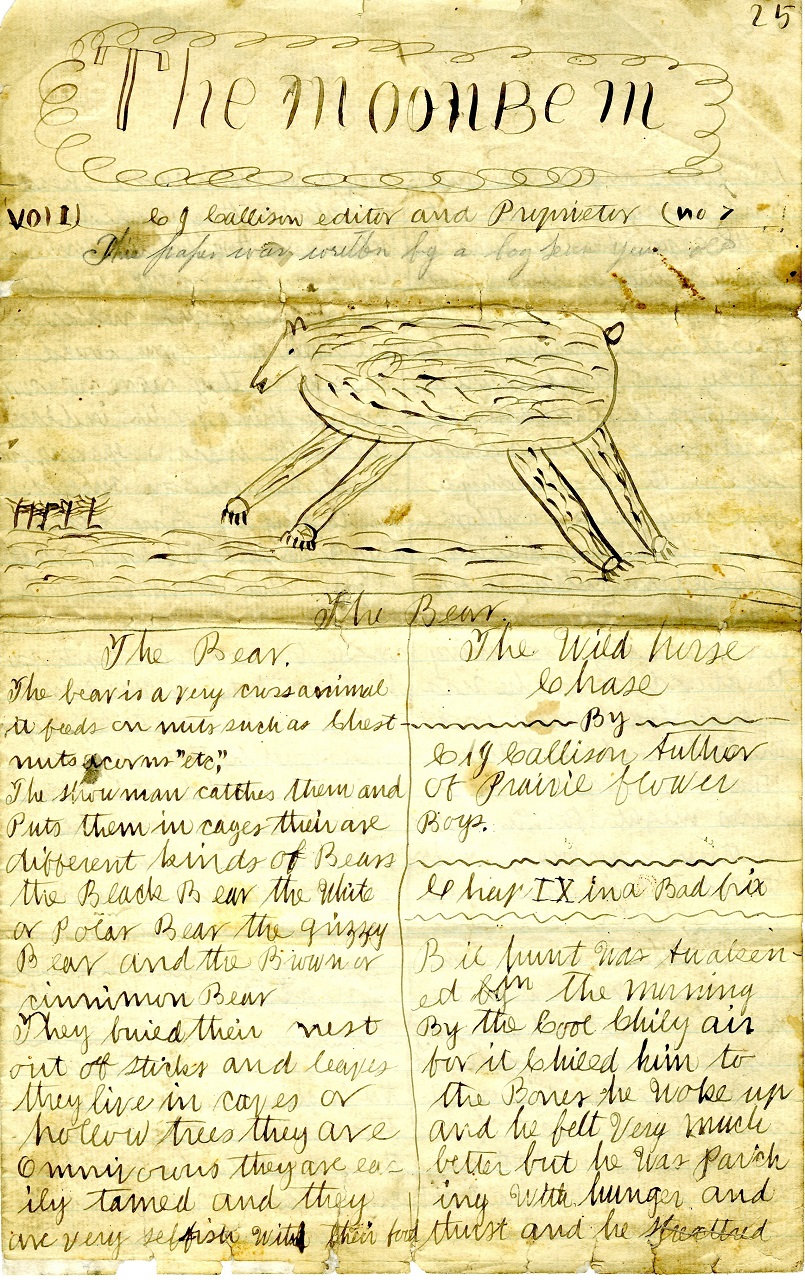 25
The moonBem
VOl 1) C J Callison editor and Proprieter (no 7
This paper was written by a boy years old
The Bear.
The Bear.
The bear is a very cross animal
it feeds on nuts such as Chest
nuts acorns "etc,"
The show man catches them and
Puts them in cages their are
different kinds of Bears
the Black Bear the White
or Polar Bear the grizzey
Bear and the Brown or
cinnimon Bear
They buied their nest
out of sticks and leaves
they live in caves or
hollow trees they are
Omnivorus they are ea-
ily tamed and they
are very selfish with their food
The Wild horse
Chase
By
C J Callison Author
of Prairie flower
Boys.
Chap IX in a Bad fix
Bil hunt was Awaken-
ed in the Morning
By the Cool Chily air
for it Chiled him to
the Bones he woke up
and he felt Very much
better but he was Parch
ing with hunger and
thirst and he